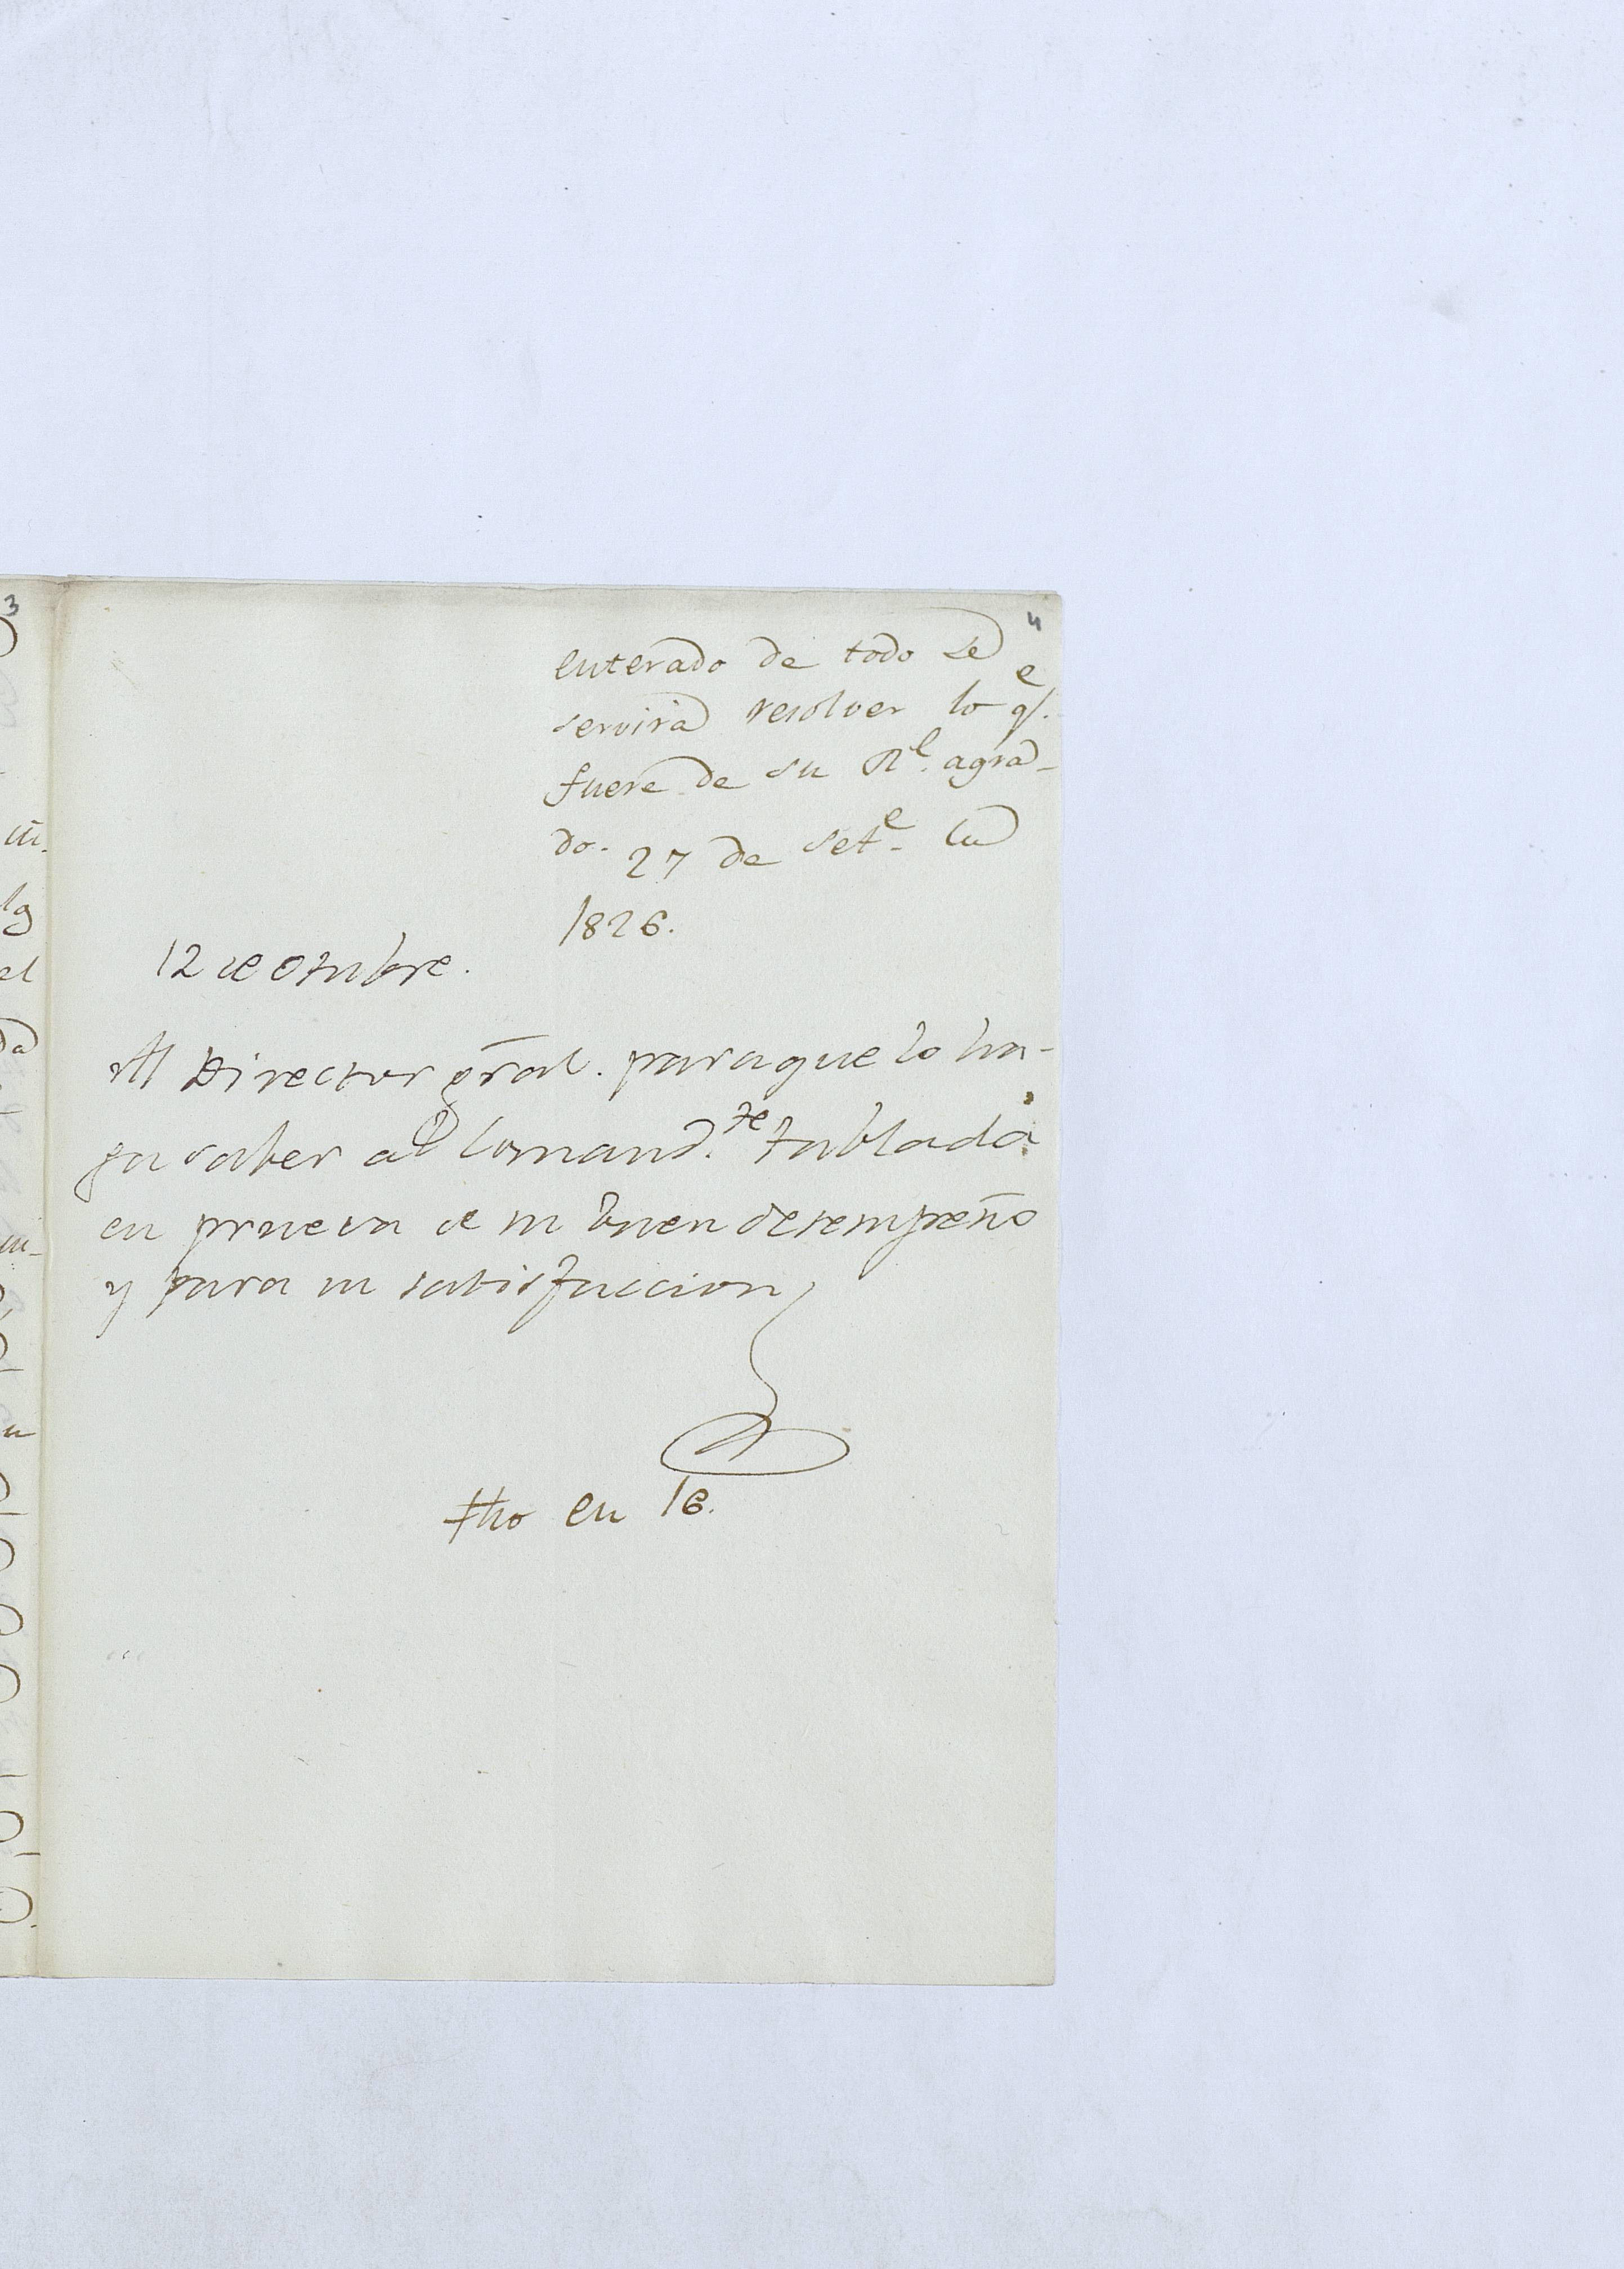 4
enterado de todo se
servirá resolver lo q.e
fuere de su Rl. agra-
do. 27 de Set.e de
1826.
12 de Otubre.
Al Director gral. para que lo ha-
ga saber al Comand.te Tablada
en prueva de su buen desempeño
y para su satisfaccion
fho en 16.
3